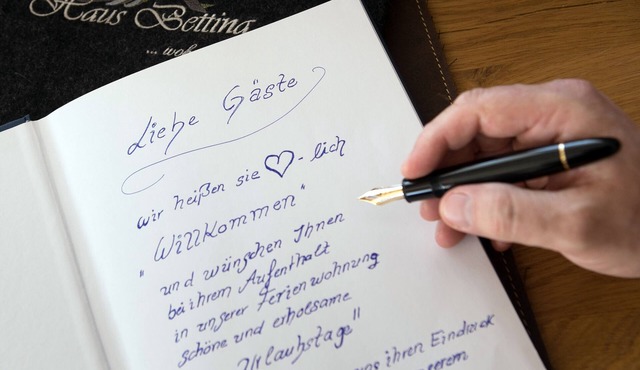 Haus Betting
...
Liebe Gäste
wir heißen sie ♡-lich
"Willkommen"
und wünschen Ihnen
bei ihrem Aufenthalt
in unserer Ferienwohnung
schöne und erholsame
Urlaubstage"
uns ihren Eindruck
unserem